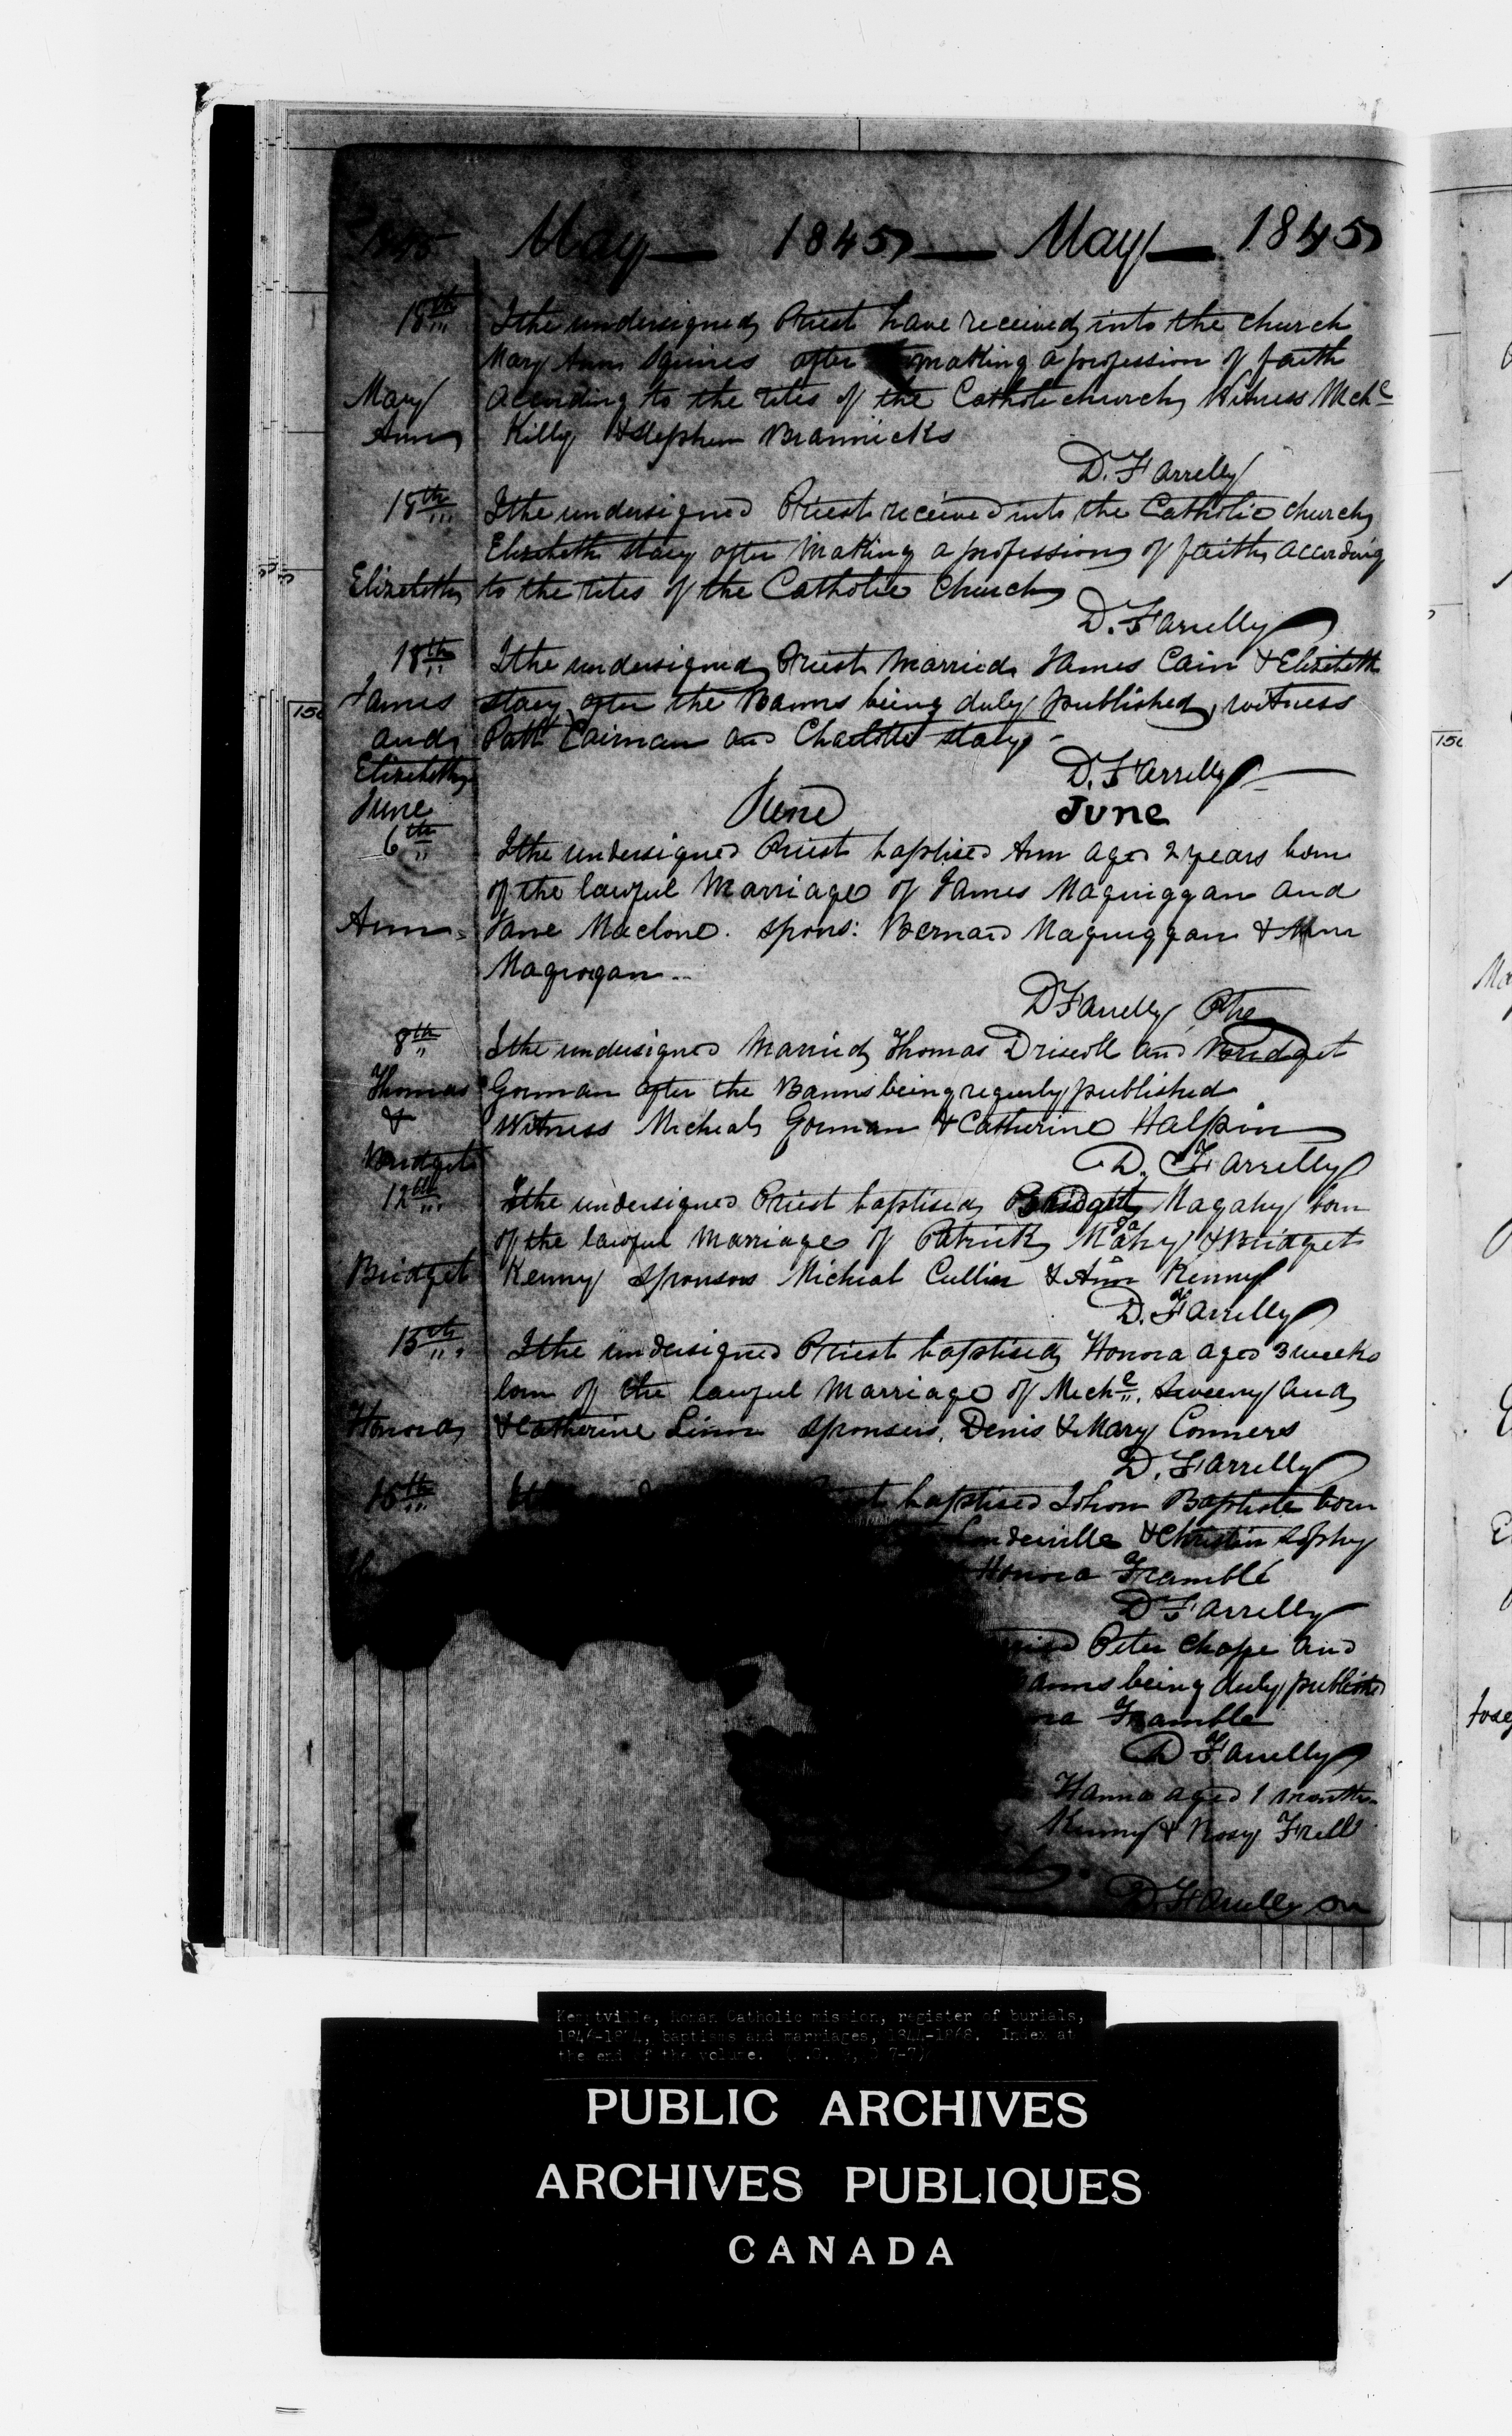 1845 May — 1845 — May — 1845
18th I the undersigned Priest have received into the church
Mary Ann Squires after making a profession of faith
Mary according to the rites of the Catholic church, Witness Mchl
Ann Killy & Stephen Brannicks
D. Farrelly
18th I the undersigned Priest received into the Catholic church
Elizabeth Stacy after making a profession of faith according
Elizabeth to the rites of the Catholic Church
D. Farrelly
18th I the undersigned Priest Married James Cain & Elizabeth
James Stacy after the Banns being duly published, witness
and Patk Cairnan and Charlotte Stacy
Elizabeth D. Farrelly
June June June
6th I the undersigned Priest baptised Ann aged 2 years born
of the lawful Marriage of James Maguiggan and
Ann Jane Maclone. spons: Bernard Maguiggan & Ann
Magrogan
D Farrelly Ptre
8th I the undersigned Married Thomas Driscoll and Bridget
Thomas Gorman after the Banns being regurly published
& Witness Micheal Gorman & Catherine Halpin
Bridget D. Farrelly
12th I the undersigned Priest baptised Bridget Magahy born
of the lawful Marriage of Patrick Magahy & Bridget
Bridget Kenny sponsors Micheal Cullin & Ann Kenny
D. Farrelly
15th I the undersigned Priest baptised Honora aged 3 weeks
born of the lawful Marriage of Michl. Sweeny and
Honora & Catherine Linon sponsers, Denis & Mary Conners
D. Farrelly
15th baptised Baptiste born
& Christin Sophy
Honora Framble
D Farrelly
Peter Chope and
being duly published
Framble
D Farrelly
Hanna aged 1 month
Kenny & Rosy Frell
D. Farrelly
150
150
Kemptville, Roman Catholic mission, register of burials,
baptisms and marriages, 1844-1868. Index at
the end of the volume.
PUBLIC ARCHIVES
ARCHIVES PUBLIQUES
CANADA